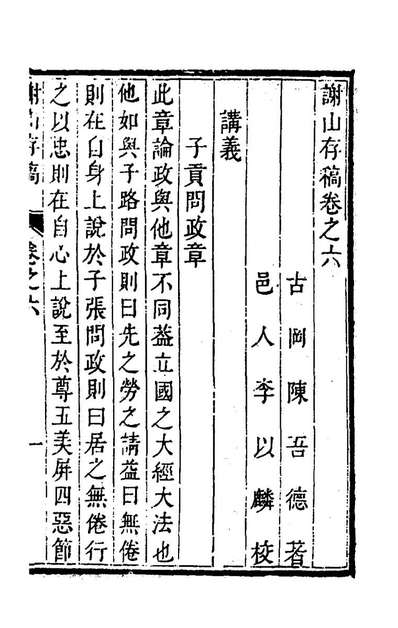 謝山存稿卷之六
古岡陳吾德著
邑人李以麟校
講義
子貢問政章
此章論政與他章不同葢立國之大經大法也
他如與子路問政則曰先之勞之請益曰無倦
則在自身上說於子張問政則曰居之無倦行
之以忠則在自心上說至於尊五美屏四惡節
謝山存稿
卷之六
一